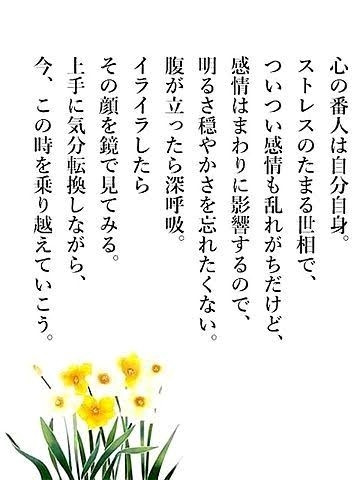 心の番人は自分自身。
ストレスのたまる世相で、
ついつい感情も乱れがちだけど、
感情はまわりに影響するので、
明るさ穏やかさを忘れたくない。
腹が立ったら深呼吸。
イライラしたら
その顔を鏡で見てみる。
上手に気分転換しながら、
今、この時を乗り越えていこう。